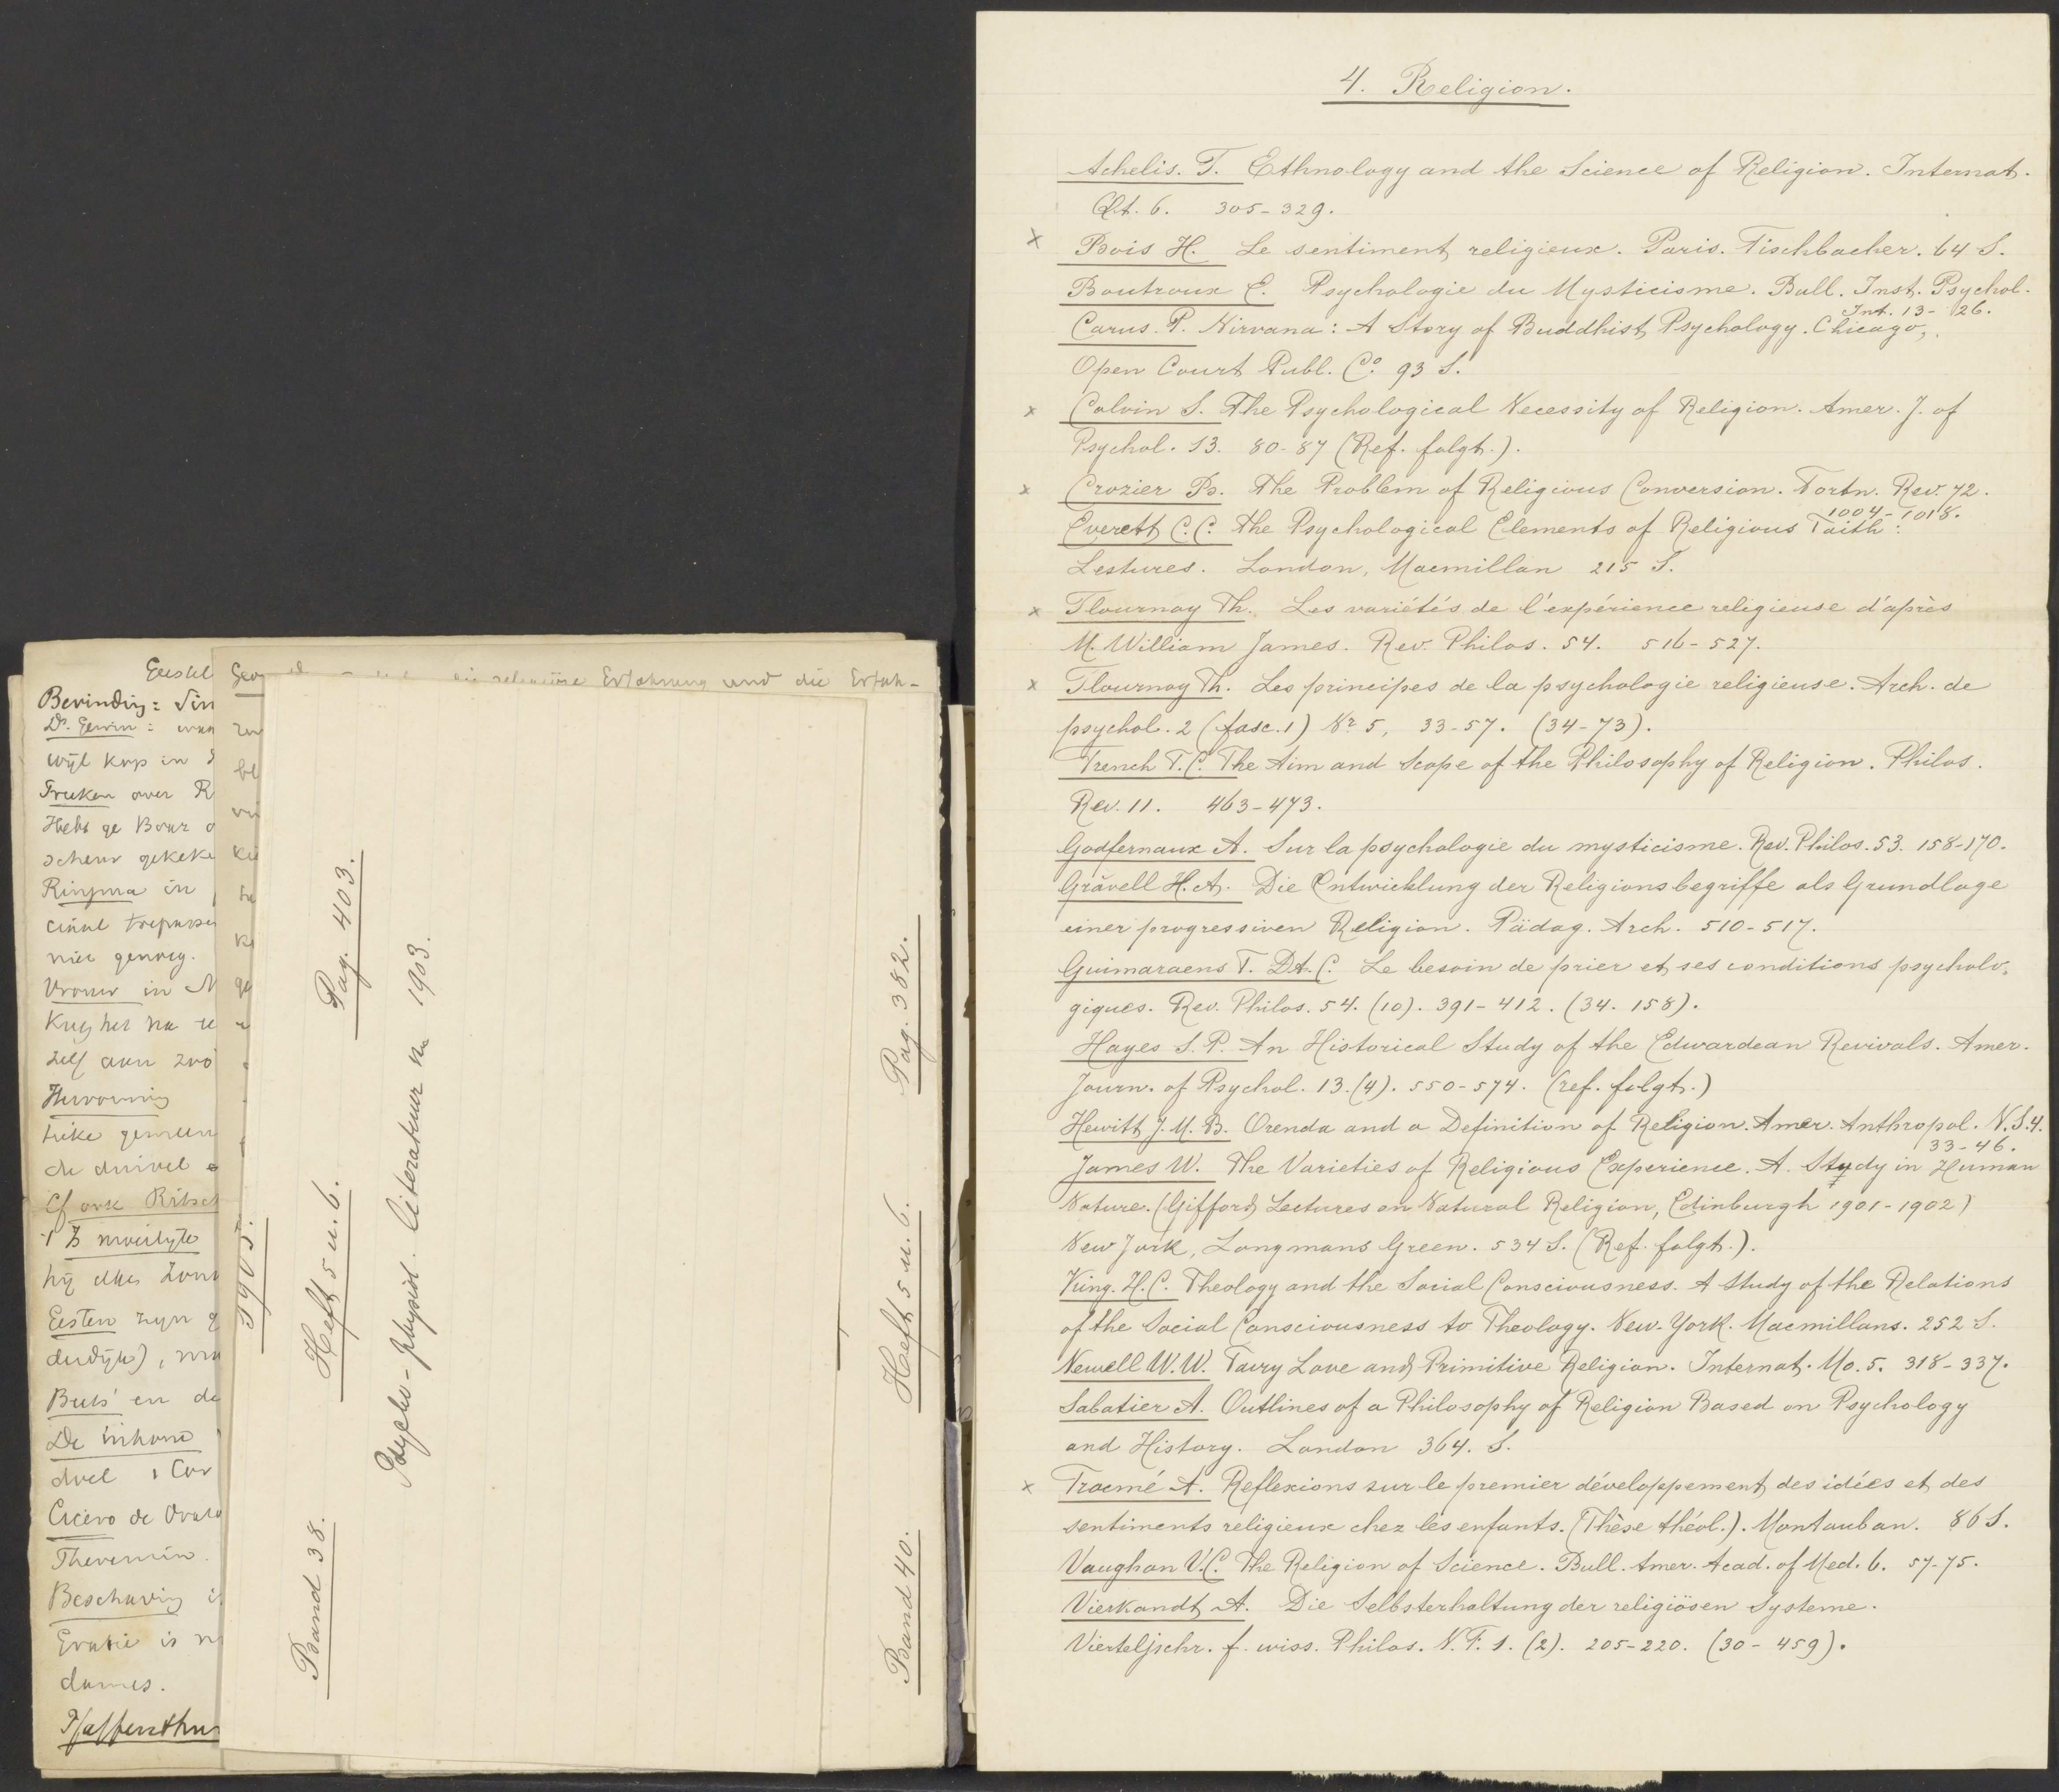 Geestel
Bevinding: Sin
Ds. Gewin:
wijl kop in
Freeken over R
Hebt ge Bour o
scheur gekeke
Ringma in
niet genoeg.
Vrouw in N
zelf aan
Hervorming
de duivel
Cf ook Ritsch
hij elken
Eesten zijn g
Buts' en de
De inhoud
doel 1 Cor
Cicero de Orato
Theremin.
Beschaving is
Gratie is
dames.
religiöse Erfahrung und die Erfah-
1905.
Band 38. Heft 5 u. 6. Pag. 403.
Psycho-physiol. literatuur na 1903.
Band 40. Heft 5 u. 6. Pag. 382.
4. Religion.
Achelis. T. Ethnology and the Science of Religion. Internat.
Qlt. 6. 305-329.
x Bois H. Le sentiment religieux. Paris. Fischbacher. 64 S.
Boutroux E. Psychologie du Mysticisme. Bull. Inst. Psychol.
Int. 13-26.
Carus. P. Nirvana: A Story of Buddhist Psychology. Chicago,
Open Court Publ. Co. 93 S.
x Colvin S. The Psychological Necessity of Religion. Amer. J. of
Psychol. 13. 80-87 (Ref. folgt.).
x Crozier B. The Problem of Religious Conversion. Fortn. Rev. 72.
1004-1018.
Everett C.C. The Psychological Elements of Religious Faith:
Lestures. London, Macmillan 215 S.
x Flournoy Th. Les variétés de l'expérience religieuse d'après
M. William James. Rev. Philos. 54. 516-527.
x Flournoy Th. Les principes de la psychologie religieuse. Arch. de
psychol. 2 (fasc. 1) Nr 5, 33-57. (34-73).
French F.C. The Aim and Scope of the Philosophy of Religion. Philos.
Rev. 11. 463-473.
Godfernaux A. Sur la psychologie du mysticisme. Rev. Philos. 53. 158-170.
Grävell H.A. Die Entwicklung der Religionsbegriffe als Grundlage
einer progressiven Religion. Pädag. Arch. 510-517.
Guimaraens F. DA. C. Le besoin de prier et ses conditions psycholo-
giques. Rev. Philos. 54. (10). 391-412. (34. 158).
Hayes S. P. An Historical Study of the Edwardean Revivals. Amer.
Journ. of Psychol. 13. (4). 550-574. (ref. folgt.)
Hewitt J. M. B. Orenda and a Definition of Religion. Amer. Anthropol. N.S. 4.
33-46.
James W. The Varieties of Religious Experience. A. Study in Human
Nature. (Gifford Lectures on Natural Religion, Edinburgh 1901-1902)
New York, Longmans Green. 534 S. (Ref. folgt.).
King. H.C. Theology and the Social Consciousness. A Study of the Relations
of the Social Consciousness to Theology. New-York. Macmillans. 252 S.
Newell W.W. Fairy Love and Primitive Religion. Internat. Mo. 5. 318-337.
Sabatier A. Outlines of a Philosophy of Religion Based on Psychology
and History. London 364. S.
x Trocmé A. Reflexions sur le premier développement des idées et des
sentiments religieux chez les enfants. (Thèse théol.). Montauban. 86 S.
Vaughan V.C. The Religion of Science. Bull. Amer. Acad. of Med. 6. 57-75.
Vierkandt A. Die Selbsterhaltung der religiösen Systeme.
Vierteljschr. f. wiss. Philos. N. F. 1. (2). 205-220. (30-459).